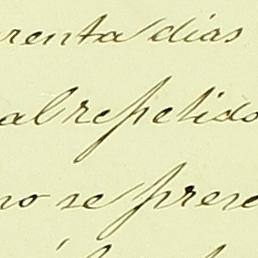 renta dias
al repetido
no se prese